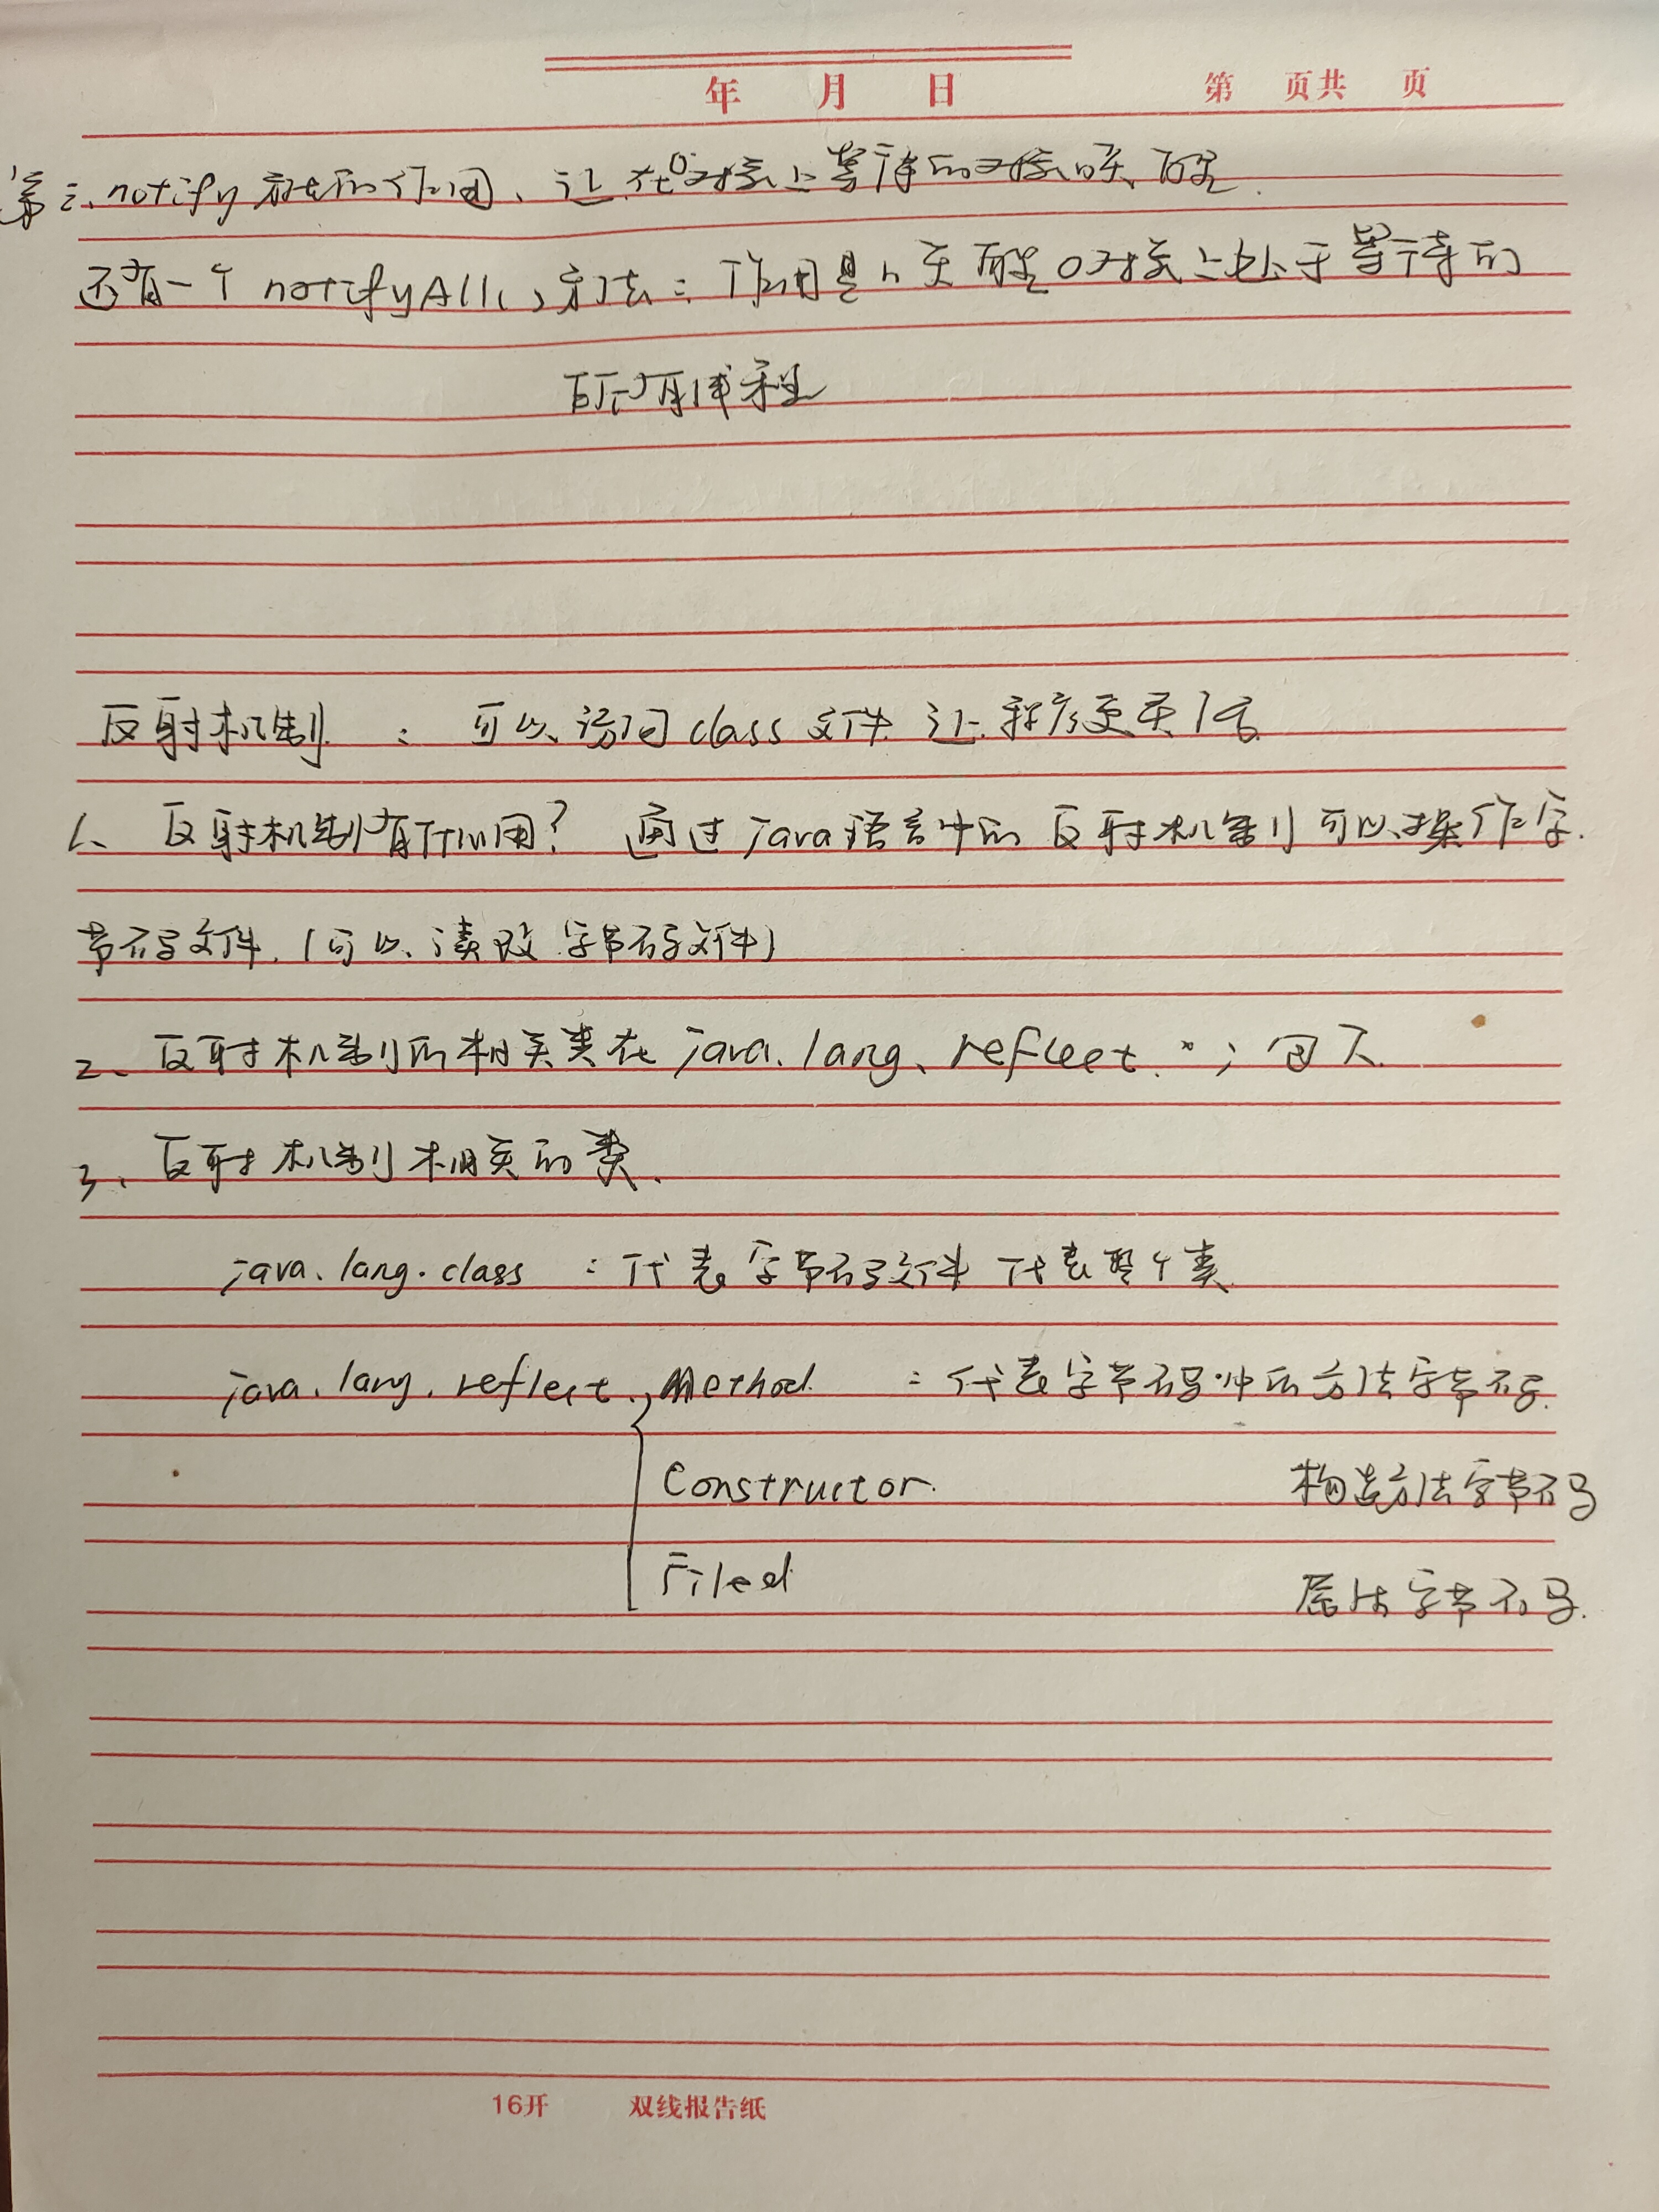 年 月 日 第 页共 页
第三、notify方法的作用、让在o对象上等待的对象唤醒.
还有一个notifyAll()方法:作用是唤醒o对象上处于等待的
所有线程
反射机制 : 可以访问class文件 让程序更灵活
1、反射机制有什么用? 通过java语言中的反射机制可以操作字
节码文件.(可以读改字节码文件)
2、反射机制的相关类在java.lang.reflect.*; 包下.
3、反射机制相关的类.
java.lang.class :代表字节码文件 代表整个类.
java.lang.reflect.Method. :代表字节码中的方法字节码.
Constructor. 构造方法字节码
Filed 属性字节码.
16开 双线报告纸